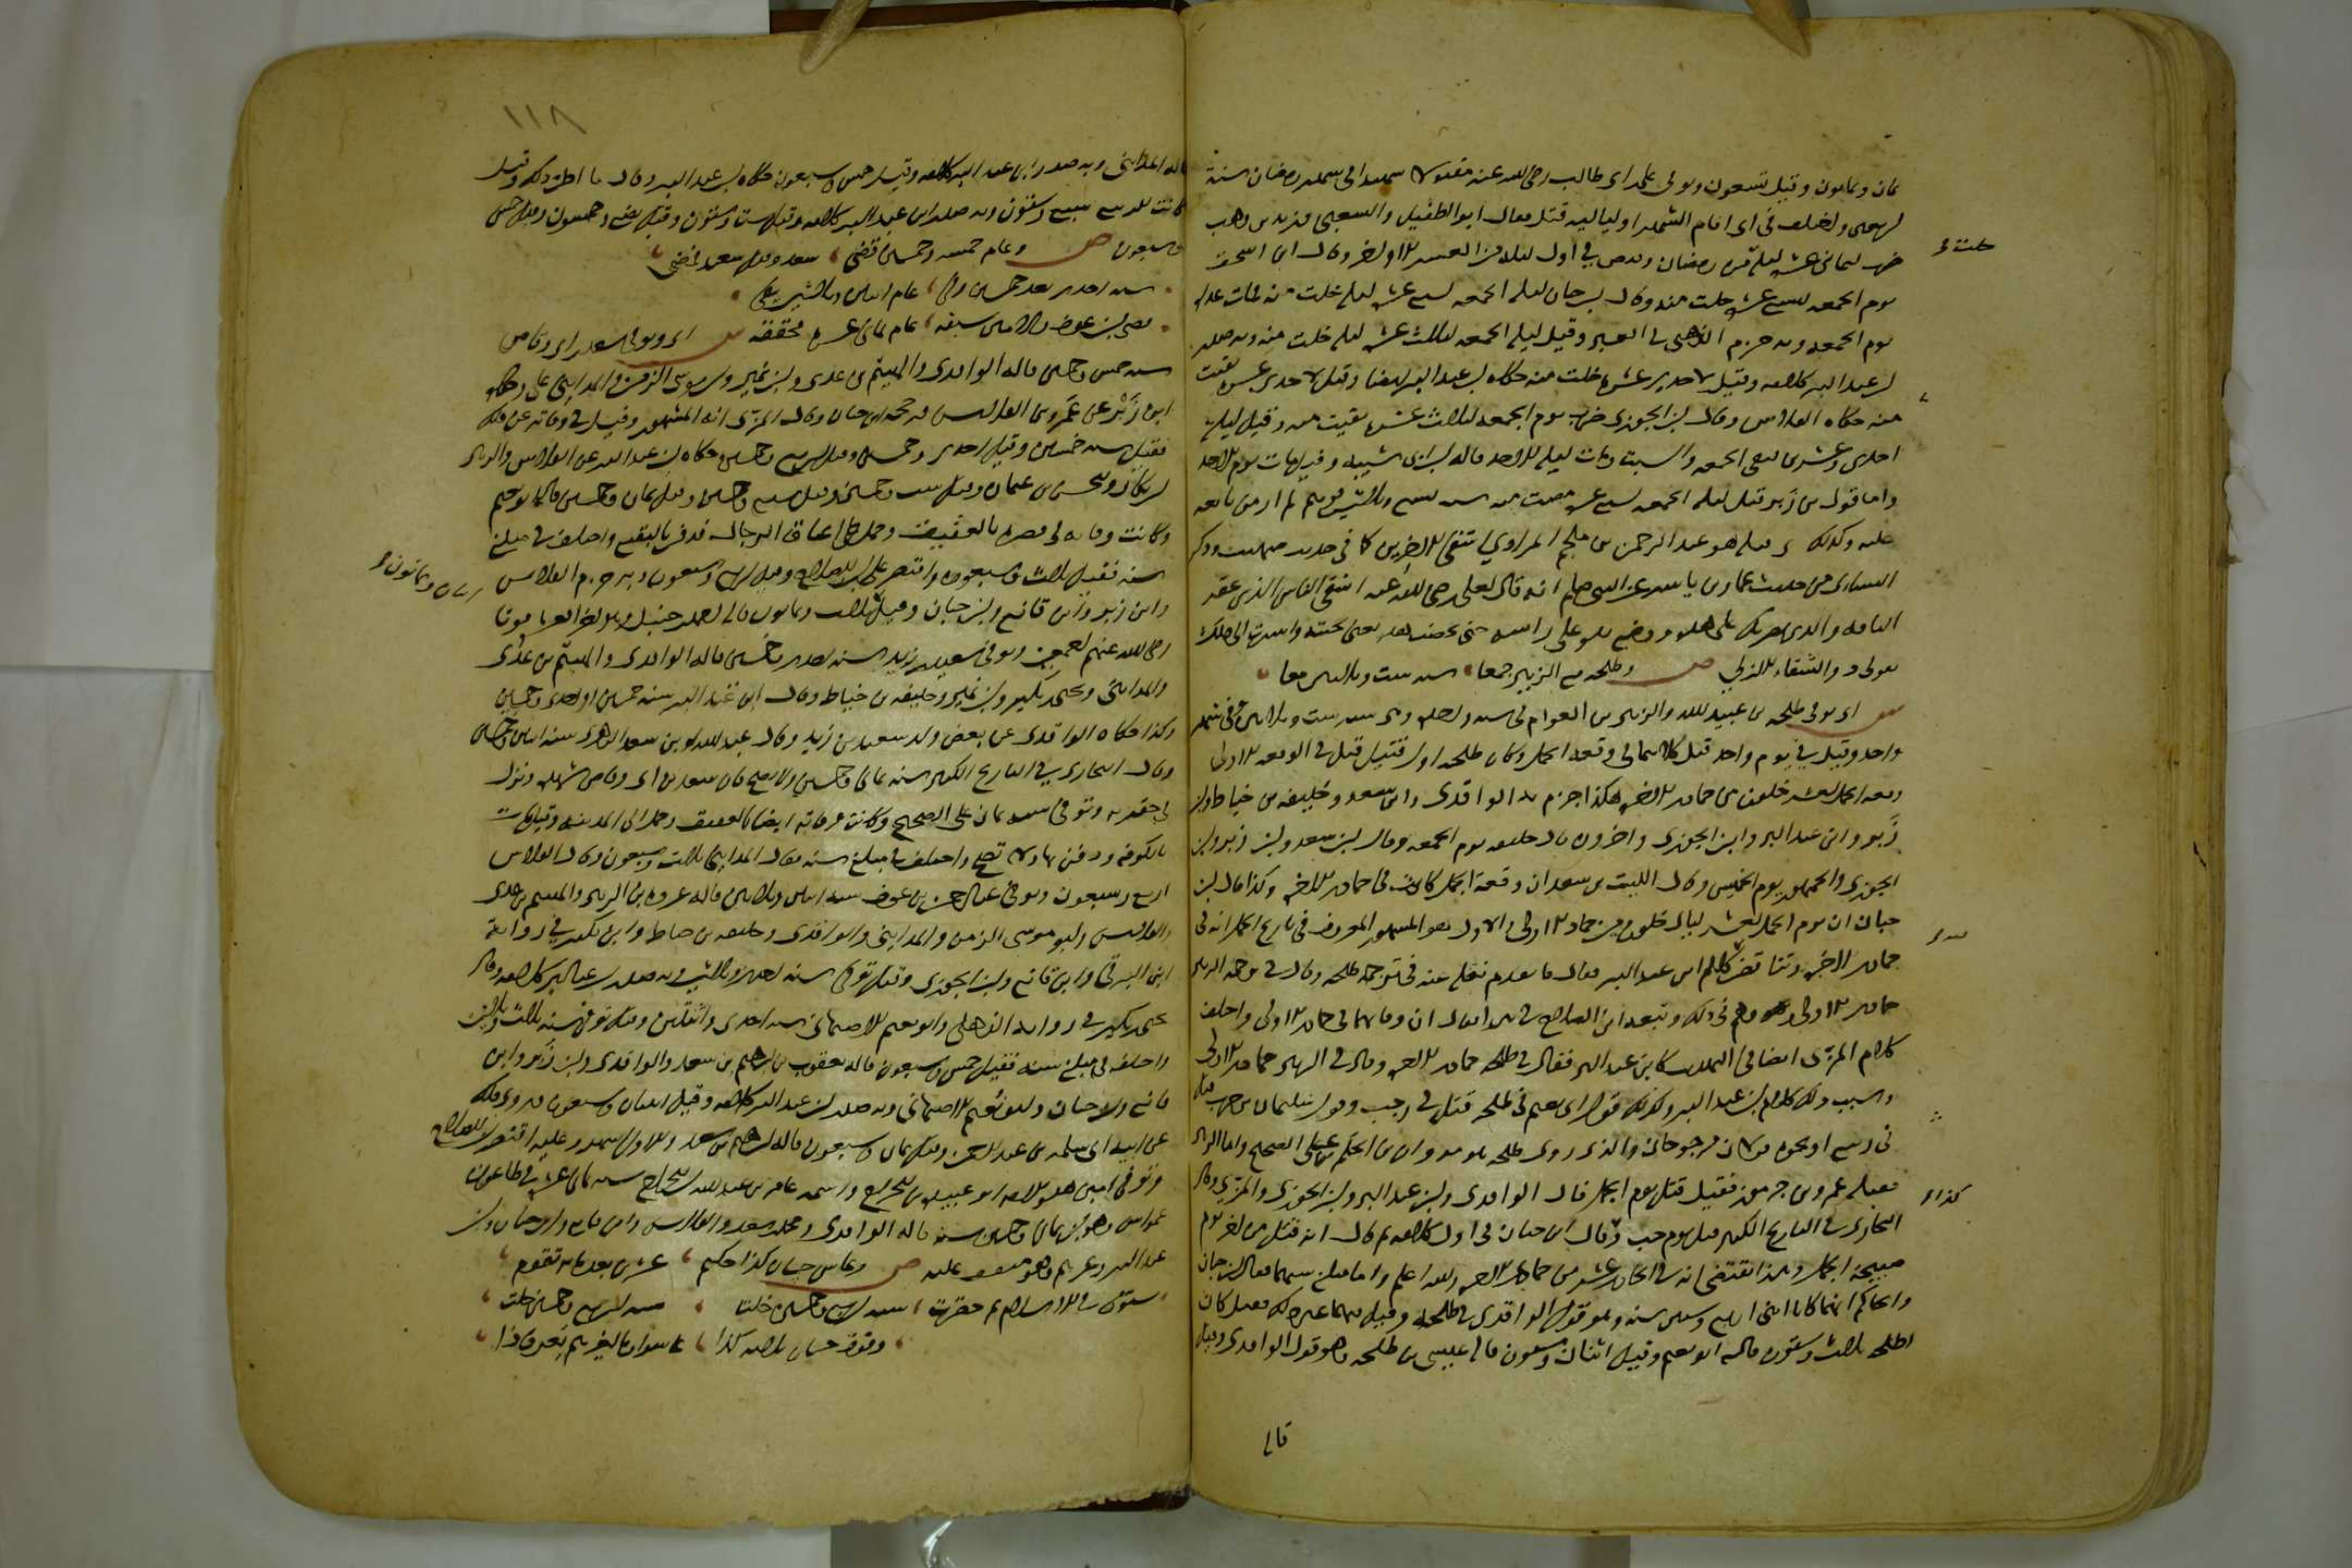 ثمان وثمانون وقيل تسعون وتوفي علي بن ابي طالب رضي الله عنه مقتولا شهيدا في شهر رمضان سنة
اربعين واختلف في اي ايام الشهر او لياليه قتل فقال ابو الطفيل والشعبي وزيد بن وهب
ضرب لثماني عشرة ليلة من رمضان وقبض في اول ليلة من العشر الاواخر وقال ابن اسحق
يوم الجمعة لسبع عشرة خلت منه وقال ابن حبان ليلة الجمعة لسبع عشرة ليلة خلت منه فمات غداة
يوم الجمعة وبه جزم الذهبي في العبر وقيل ليلة الجمعة لثلاث عشرة ليلة خلت منه وبه صدر
ابن عبد البر كلامه وقيل لاحدى عشرة خلت منه حكاه ابن عبد البر ايضا وقيل لاحدى عشرة بقيت
منه حكاه الفلاس وقال ابن الجوزي ضرب يوم الجمعة لثلاث عشرة بقيت منه وقيل ليلة
احدى وعشرين فبقي الجمعة والسبت ومات ليلة الاحد قاله ابن ابي شيبة وقيل مات يوم الاحد
واما قول ابن زبر قتل ليلة الجمعة لسبع عشرة مضت منه سنة تسع وثلاثين فوهم لم ار من تابعه
عليه وكذلك وقتله هو عبد الرحمن بن ملجم المرادي اشقى الاخرين كما في حديث صهيب وذكر
النسائي من حديث عمار بن ياسر عن النبي صلعم انه قال لعلي رضي الله عنه اشقى الناس الذي عقر
الناقة والذي يضربك على هذا ووضع يده على راسه حتى يخضب هذه يعني لحيته واشار الى ذلك
بقوله ذو الشقاء الازلي ص وطلحة مع الزبير جمعا سنة ست وثلاثين معا
ش اي توفي طلحة بن عبيد الله والزبير بن العوام في سنة واحدة وهي سنة ست وثلاثين في شهر
واحد وقيل في يوم واحد قتل كلاهما في وقعة الجمل وكان طلحة اول قتيل قتل في الوقعة الاولى
وقعة الجمل لعشر خلون من جمادى الاخرة هكذا جزم به الواقدي وابن سعد وخليفة بن خياط وابن
زبر وابن عبد البر وابن الجوزي واخرون قال خليفة يوم الجمعة وقال ابن سعد وابن زبر وابن
الجوزي والجمهور يوم الخميس وقال الليث بن سعد ان وقعة الجمل كانت في جمادى الاخرة وكذا قال ابن
حبان ان يوم الجمل لعشر ليال خلون من جمادى الاولى والاول هو المشهور المعروف في تاريخ الجمل انه في
جمادى الاخرة وتناقض كلام ابن عبد البر فقال ما تقدم نقله عنه في ترجمة طلحة وقال في ترجمة الزبير
جمادى الاولى وهو وهم في ذلك وتبعه ابن الصلاح في هذا فقال ان وفاتهما في جمادى الاولى واختلف
كلام المزي ايضا في التهذيب كابن عبد البر فقال في طلحة جمادى الاخرة وقال في الزبير جمادى الاولى
وسبب ذلك كلام ابن عبد البر وكذلك قول ابي نعيم في طلحة قتل في رجب وقول سليمان بن حرب قتل
في ربيع او نحوه قولان مرجوحان والذي رمى طلحة هو مروان بن الحكم على الصحيح واما الزبير
فقتله عمرو بن جرموز فقيل قتل يوم الجمل قال الواقدي وابن عبد البر وابن الجوزي والمزي وقال
البخاري في التاريخ الكبير قتل يوم رجب وقال ابن حبان في اول كلامه ثم قال انه قتل من اخر يوم
صبيحة الجمل وهذا يقتضي انه في الحادي عشر من جمادى الاخرة والله اعلم واما مبلغ سنهما فقال ابن حبان
والحاكم انهما كانا ابني اربع وستين سنة وهو قول الواقدي في طلحة وقيل فيهما غير ذلك فقيل كان
لطلحة ثلاث وستون قاله ابو نعيم وقيل اثنتان وستون قاله عيسى بن طلحة وهو قول الواقدي وقيل
قاله
خلت
كذا
١١٨
قاله المدائني وبه صدر ابن عبد البر كلامه وقيل خمس وسبعون حكاه ابن عبد البر وقال ما اظن ذلك وقيل
كانت للزبير سبع وستون وبه صدر ابن عبد البر كلامه وقيل ست وستون وقيل بضع وخمسون وقيل خمس
وسبعون ص وعام خمسة وخمسين قضى سعد وقبله سعيد فمضى
سنة احدى بعد خمسين وفي عام اثنين وثلاثين يفي
قضى ابن عوف والامين سبقه عام ثماني عشرة محققه ش اي وتوفي سعد بن ابي وقاص
سنة خمس وخمسين قاله الواقدي والهيثم بن عدي وابن نمير وابو موسى الزمن والمدائني وحكاه
ابن زبر عن عمرو بن علي الفلاس ورجحه ابن حبان وقال المزي انه المشهور وقيل في وفاته غير ذلك
فقيل سنة خمسين وقيل احدى وخمسين وقيل اربع وخمسين حكاه ابن عبد البر عن الفلاس والزبير
ابن بكار والحسن بن عثمان وقيل ست وخمسين وقيل سبع وخمسين وقيل ثمان وخمسين قاله ابو نعيم
وكانت وفاته في قصره بالعقيق وحمل على اعناق الرجال فدفن بالبقيع واختلف في مبلغ
سنه فقيل ثلاث وسبعون واقتصر عليه ابن الصلاح وقيل اربع وسبعون وبه جزم الفلاس
وابن زبر وابن قانع وابن حبان وقيل ثلاث وثمانون قاله احمد بن حنبل وهو اخر العشرة موتا
رضي الله عنهم اجمعين وتوفي سعيد بن زيد سنة احدى وخمسين قاله الواقدي والهيثم بن عدي
والمدائني ويحيى بن بكير وابن نمير وخليفة بن خياط وقال ابن عبد البر سنة خمسين او احدى وخمسين
وكذا حكاه الواقدي عن بعض ولد سعيد بن زيد وقال عبيد الله بن سعد الزهري سنة اثنتين وخمسين
وقال البخاري في التاريخ الكبير سنة ثمان وخمسين ولا يصح فان سعد بن ابي وقاص شهده ونزل
في حفرته وتوفي سنة ثمان على الصحيح وكانت وفاته ايضا بالعقيق وحمل الى المدينة وقيل مات
بالكوفة ودفن بها ولا يصح واختلف في مبلغ سنه فقال المدائني ثلاث وسبعون وقال الفلاس
اربع وسبعون وتوفي عبد الرحمن بن عوف سنة اثنتين وثلاثين قاله عروة بن الزبير والهيثم بن عدي
والفلاس وابو موسى الزمن والمدائني والواقدي وخليفة بن خياط وابن بكير في رواية
ابن البرقي وابن قانع وابن الجوزي وقيل توفي سنة احدى وثلاثين وبه صدر ابن عبد البر كلامه وقال
يحيى بن بكير في رواية الذهلي وابو نعيم الاصبهاني سنة احدى او اثنتين وقيل توفي سنة ثلاث وثلاثين
واختلف في مبلغ سنه فقيل خمس وسبعون قاله يعقوب بن ابراهيم بن سعد والواقدي وابن زبر وابن
قانع وابن حبان وابو نعيم الاصبهاني وبه صدر ابن عبد البر كلامه وقيل اثنتان وسبعون وروي ذلك
عن ابنه ابي سلمة بن عبد الرحمن وقيل ثمان وسبعون قاله ابراهيم بن سعد والاول اشهر وعليه اقتصر ابن الصلاح
وتوفي امين هذه الامة ابو عبيدة بن الجراح واسمه عامر بن عبد الله بن الجراح سنة ثماني عشرة في طاعون
عمواس وهو ابن ثمان وخمسين سنة قاله الواقدي ومحمد بن سعد والفلاس وابن قانع وابن حبان وابن
عبد البر وغيرهم وهو متفق عليه ص وعاش حسان كذا حكيم عشرين بعد مائة تقوم
ستون في الاسلام ثم حضرت سنة اربع وخمسين خلت سنة اربع وخمسين خلت
وفوق حسان ثلاثة كذا عاشوا وما لغيرهم يعرف ذا
وثمانون